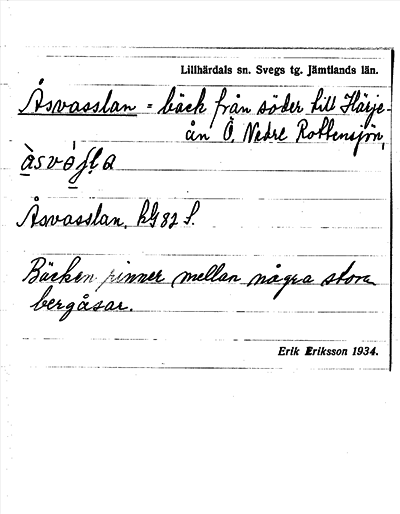 Lillhärdals sn. Svegs tg. Jämtlands län.
Åsvasslan = bäck från söder till Härje-
ån Ö. Nedre Rottensjön,
Åsvasslan. kG82 S.
Bäcken rinner mellan några stora
bergåsar.
Erik Eriksson 1934.